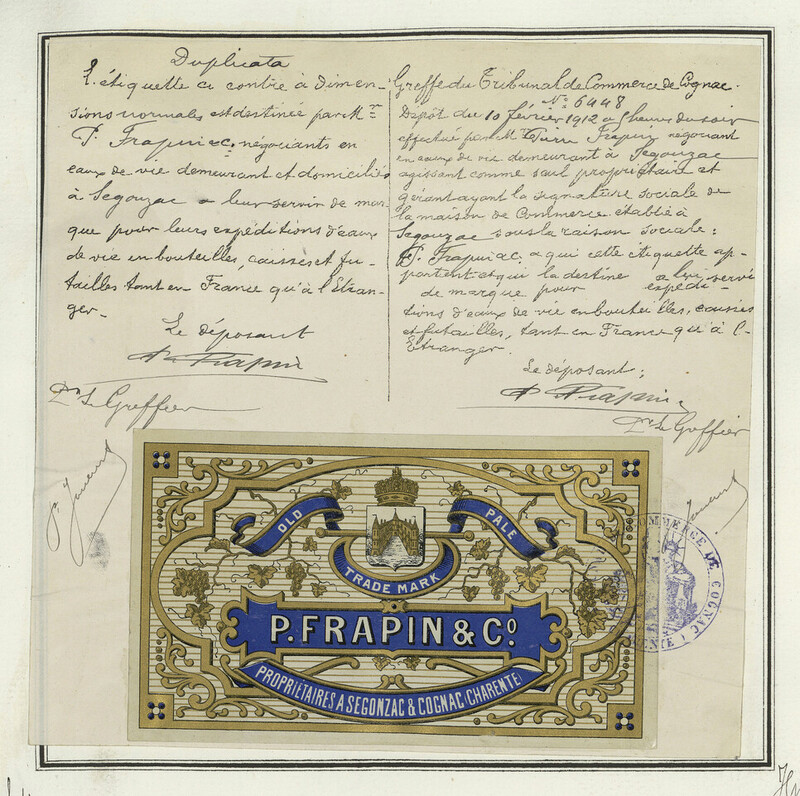 Duplicata
L'étiquette ci contre à dimen-
sions normales est destinée par Mrs
P. Frapin & C. négociants en
eaux de vie demeurant et domiciliés
à Segonzac a leur servir de mar-
que pour leurs expéditions d'eaux
de vie en bouteilles, caisses et fu-
tailles tant en France qu'à l'Etran-
ger.
Le déposant
P. Frapin
Pr Le Greffier
Greffe du Tribunal de Commerce de Cognac.
No 6448
Dépôt du 10 février 1912 a heures du soir
effectué par M. Frapin négociant
en eaux de vie demeurant à Segonzac
agissant comme seul propriétaire et
gérant ayant la signature sociale de
la maison de Commerce établie à
Segonzac sous la raison sociale:
P. Frapin & C. a qui cette étiquette ap-
partient et qui la destine a lui servir
de marque pour expédi-
tions d'eaux de vie en bouteilles, caisses
et futailles, tant en France qu'à l'-
Etranger.
Le déposant;
P. Frapin
Pr Le Greffier
OLD PALE
TRADE MARK
P. FRAPIN & Co.
PROPRIÉTAIRES A SEGONZAC & COGNAC (CHARENTE)
COMMERCE DE COGNAC